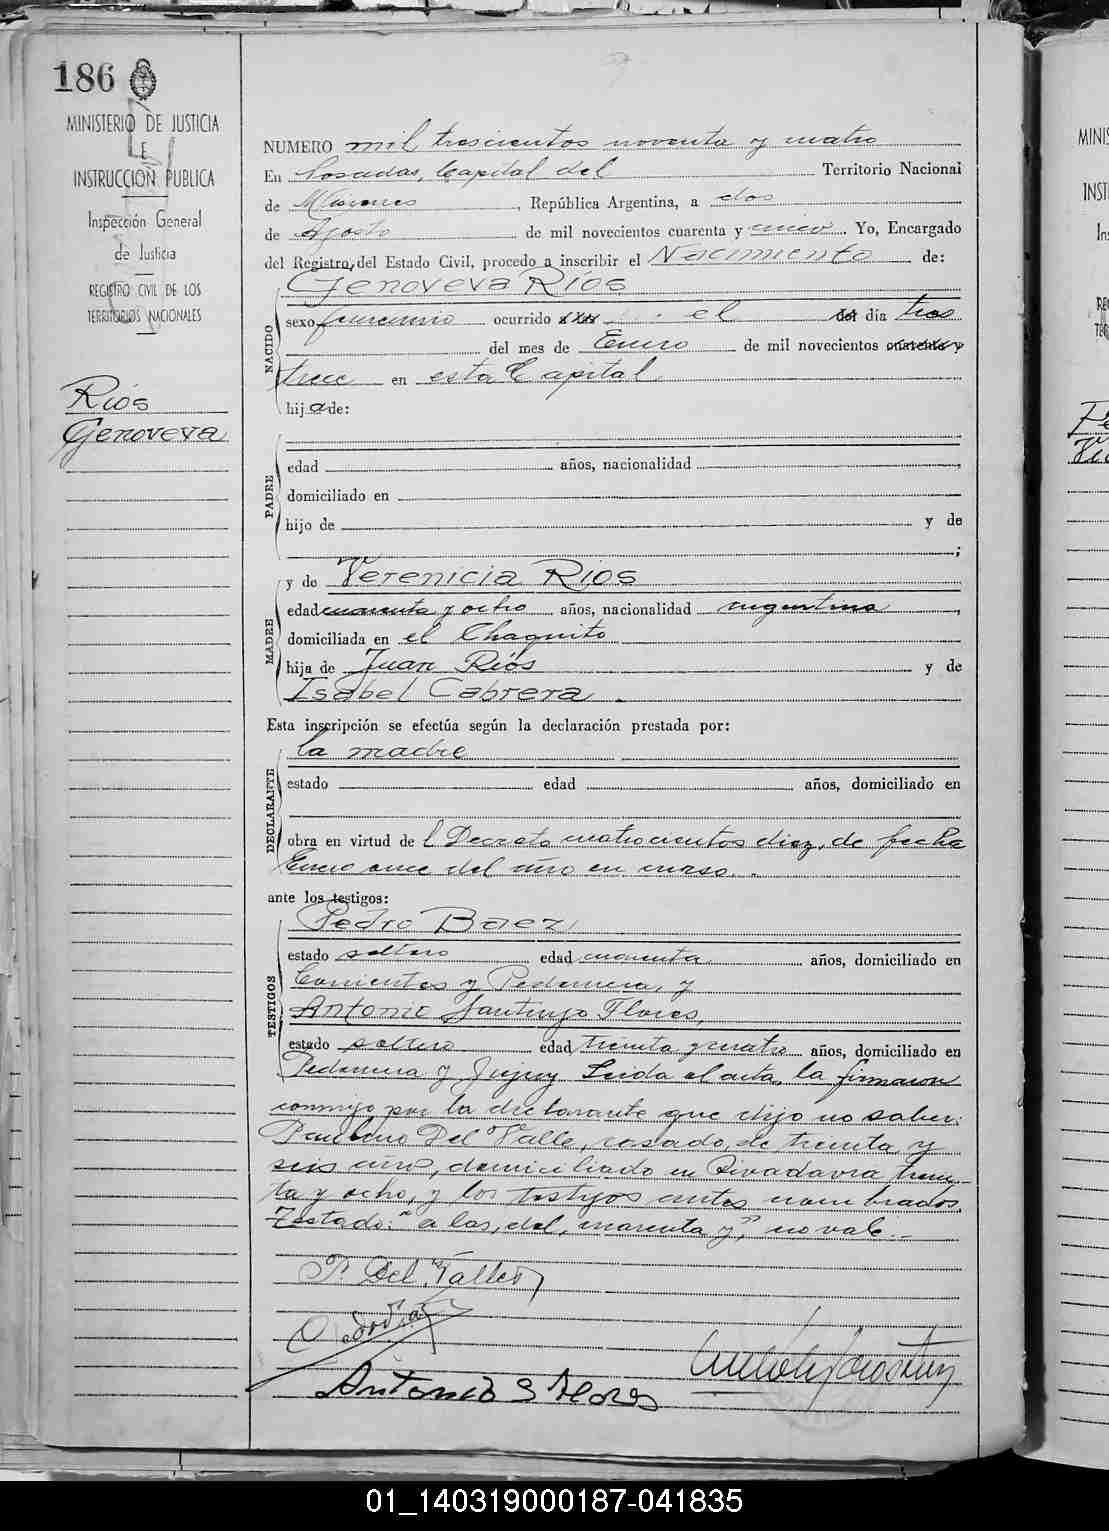 186
MINISTERIO DE JUSTICIA
E
INSTRUCCION PUBLICA
Inspección General
de Justicia
REGISTRO CIVIL DE LOS
TERRITORIOS NACIONALES
Rios
Genoveva
NUMERO mil trescientos noventa y cuatro
En Posadas, Capital del Territorio Nacional
de Misiones, República Argentina, a dos
de Agosto de mil novecientos cuarenta y cinco. Yo, Encargado
del Registro del Estado Civil, procedo a inscribir el Nacimiento de:
NACIDO
Genoveva Ríos
sexo femenino ocurrido el del día tres
del mes de Enero de mil novecientos cuarenta y
trece en esta Capital
hija de:
PADRE
edad años, nacionalidad
domiciliado en
hijo de y de
;
MADRE
y de Verenicia Rios
edad cuarenta y ocho años, nacionalidad argentina,
domiciliada en el Chaquito
hija de Juan Rios y de
Isabel Cabrera.
Esta inscripción se efectúa según la declaración prestada por:
DECLARANTE
la madre
estado edad años, domiciliado en
obra en virtud del Decreto cuatrocientos diez, de fecha
Enero once del año en curso.
ante los testigos:
TESTIGOS
Pedro Baez
estado soltero edad cuarenta años, domiciliado en
Corrientes y Pedernera, y
Antonio Santiago Flores,
estado soltero edad treinta y cuatro años, domiciliado en
Pedernera y Jujuy Leida el acta, la firmaron
conmigo por la declarante que dijo no saber:
Del Valle, casado, de treinta y
seis años, domiciliado en Rivadavia trein-
ta y ocho, y los testigos antes nombrados.
Testado: "a las, del, cuarenta y", no vale.-
P. Del Valle
Antonio S Flores
MINIS
INST
Ins
RE
TE
01_140319000187-041835